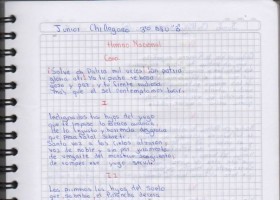 Junior Chilingano
Himno Nacional
Coro
¡Salve oh Patria mil veces! ¡oh patria
gloria a ti! ya tu pecho
gozo y paz, y tu frente radiosa
más que el sol contemplamos lucir.
I
Indignados tus hijos del yugo
que te impuso la ibérica audacia
de la injusta y horrenda desgracia
que pesaba fatal sobre ti
Santa voz a los cielos alzaron
voz de noble y sin par juramento
de vengarte del monstruo
de romper ese yugo servil
II
Los primeros los hijos del suelo
que soberbio, el Pichincha decora